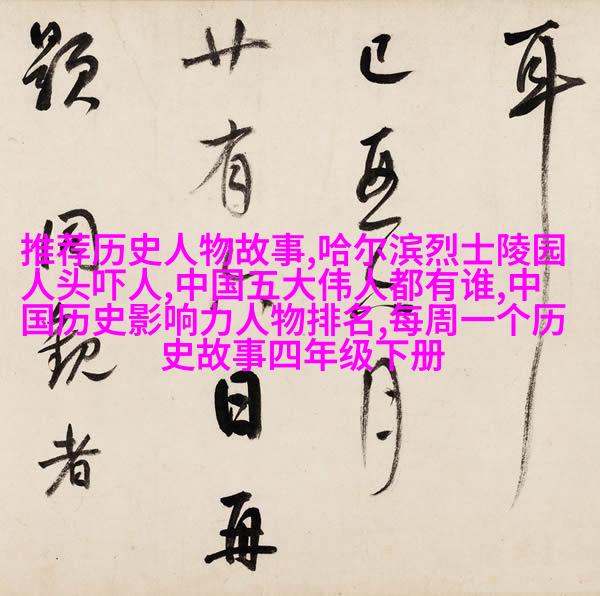 推荐历史人物故事,哈尔滨烈士陵园
人头吓人,中国五大伟人都有谁,中
国历史影响力人物排名,每周一个历
史故事四年级下册
耳
已亥月
廿有日再
題同觀者